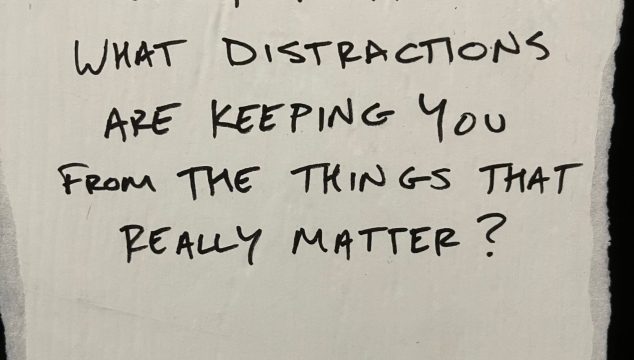 WHAT DISTRACTIONS
ARE KEEPING YOU
FROM THE THINGS THAT
REALLY MATTER?